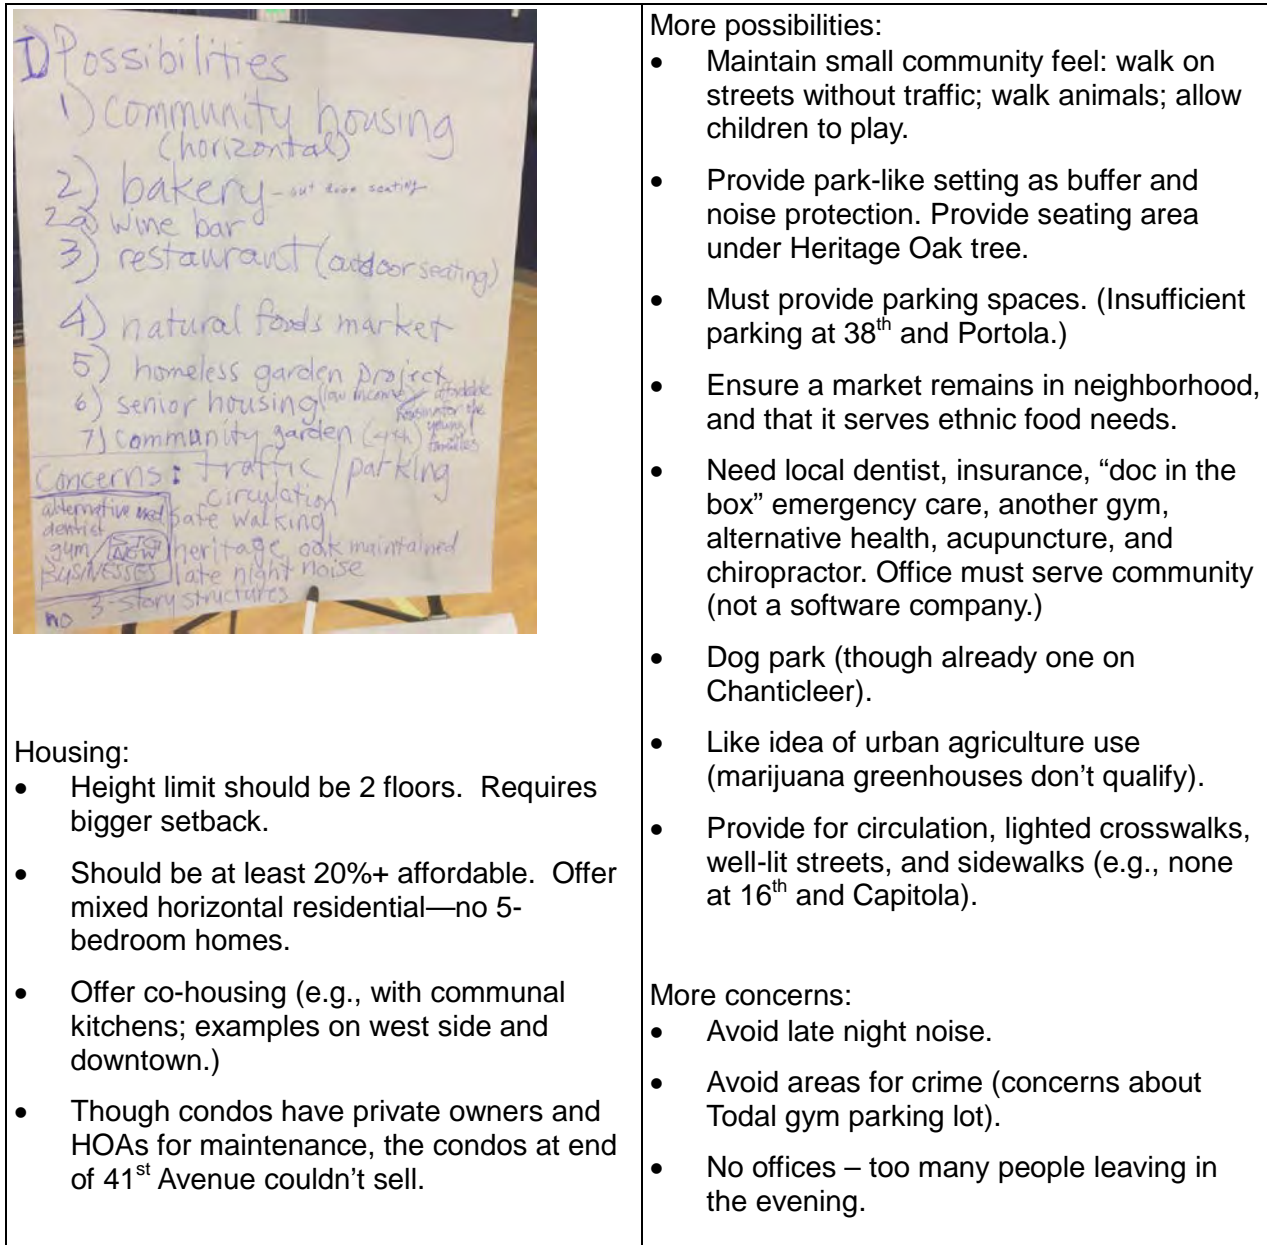 I) Possibilities
1) community housing
(horizontal)
2) bakery - out door seating
2a) wine bar
3) restaurant (outdoor seating)
4) natural foods market
5) homeless garden project
6) senior housing (low income) affordable
housing for the
young
families
7) community garden (4th)
Concerns: traffic / parking
circulation
alternative med
dentist
gym
NEW
BUSINESSES
safe walking
heritage oak maintained
late night noise
no 3-story structures
Housing:
• Height limit should be 2 floors. Requires
bigger setback.
• Should be at least 20%+ affordable. Offer
mixed horizontal residential—no 5-
bedroom homes.
• Offer co-housing (e.g., with communal
kitchens; examples on west side and
downtown.)
• Though condos have private owners and
HOAs for maintenance, the condos at end
of 41st Avenue couldn’t sell.
More possibilities:
• Maintain small community feel: walk on
streets without traffic; walk animals; allow
children to play.
• Provide park-like setting as buffer and
noise protection. Provide seating area
under Heritage Oak tree.
• Must provide parking spaces. (Insufficient
parking at 38th and Portola.)
• Ensure a market remains in neighborhood,
and that it serves ethnic food needs.
• Need local dentist, insurance, “doc in the
box” emergency care, another gym,
alternative health, acupuncture, and
chiropractor. Office must serve community
(not a software company.)
• Dog park (though already one on
Chanticleer).
• Like idea of urban agriculture use
(marijuana greenhouses don’t qualify).
• Provide for circulation, lighted crosswalks,
well-lit streets, and sidewalks (e.g., none
at 16th and Capitola).
More concerns:
• Avoid late night noise.
• Avoid areas for crime (concerns about
Todal gym parking lot).
• No offices – too many people leaving in
the evening.